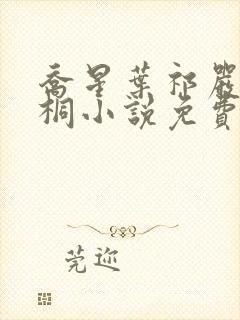 喬星葉祁嚴
桐小說免費
莞迩